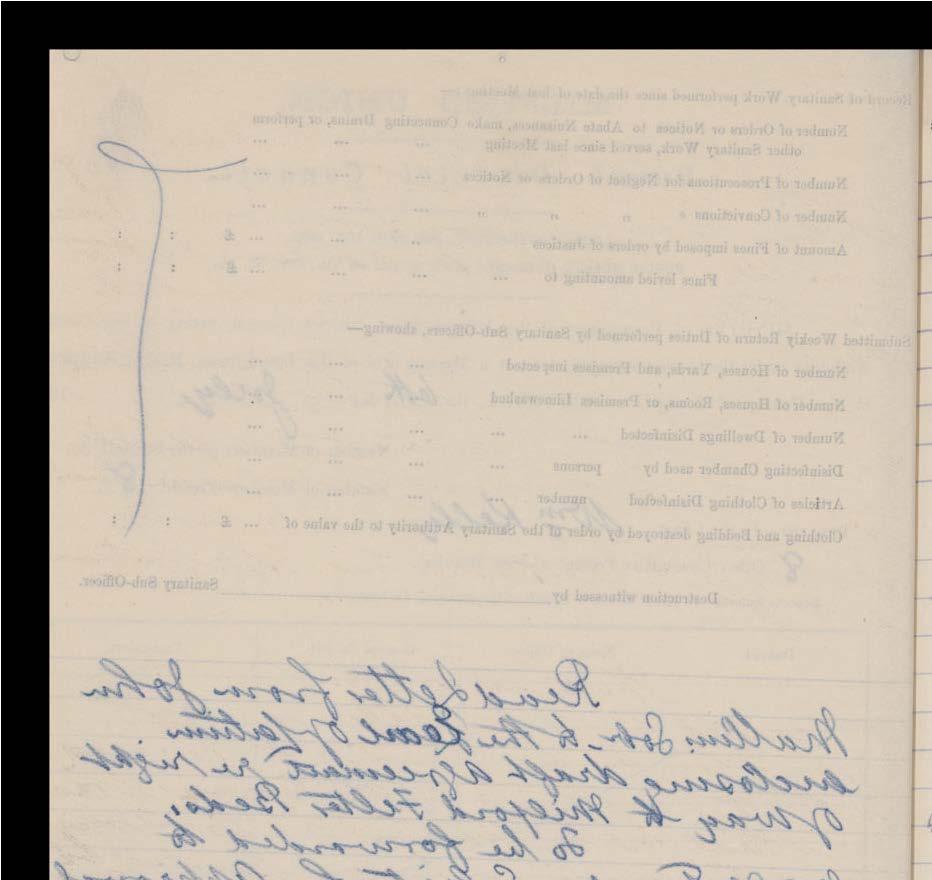 8
Record of Sanitary Work performed since the date of last Meeting :—
Number of Orders or Notices to Abate Nuisances, make Connecting Drains, or perform
other Sanitary Work, served since last Meeting ... ... ...
Number of Prosecutions for Neglect of Orders or Notices ... ... ...
Number of Convictions " " " " ... ... ...
Amount of Fines imposed by orders of Justices ... ... ... £ : :
Fines levied amounting to ... ... ... ... £ : :
Submitted Weekly Return of Duties performed by Sanitary Sub-Officers, showing—
Number of Houses, Yards, and Premises inspected ... ...
Number of Houses, Rooms, or Premises Limewashed ... ...
Number of Dwellings Disinfected ... ... ... ... ...
Disinfecting Chamber used by persons ... ... ... ...
Articles of Clothing Disinfected number ... ... ... ...
Clothing and Bedding destroyed by order of the Sanitary Authority to the value of ... £ : :
Destruction witnessed by Sanitary Sub-Officer.
Read letter from John
Mullin, Solr. to the Earl of
enclosing draft agreement re right
of way to Milford Filter Beds.
To be forwarded to